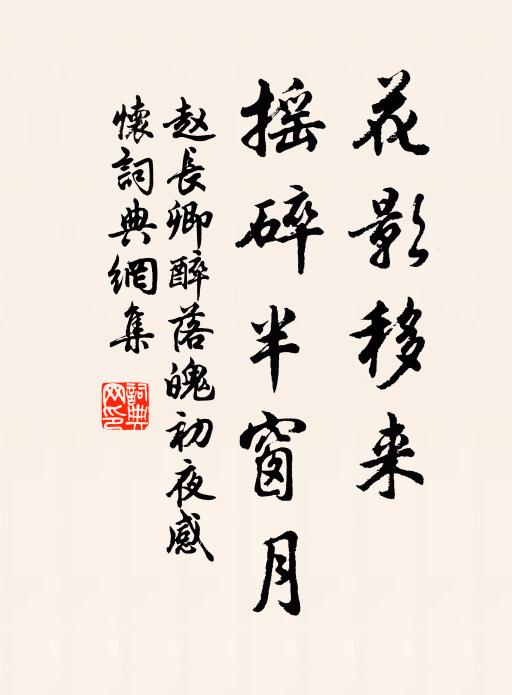 花影移来
摇碎半窗月
赵長卿醉落魄初夜感
懷詞典網集
詞典网印